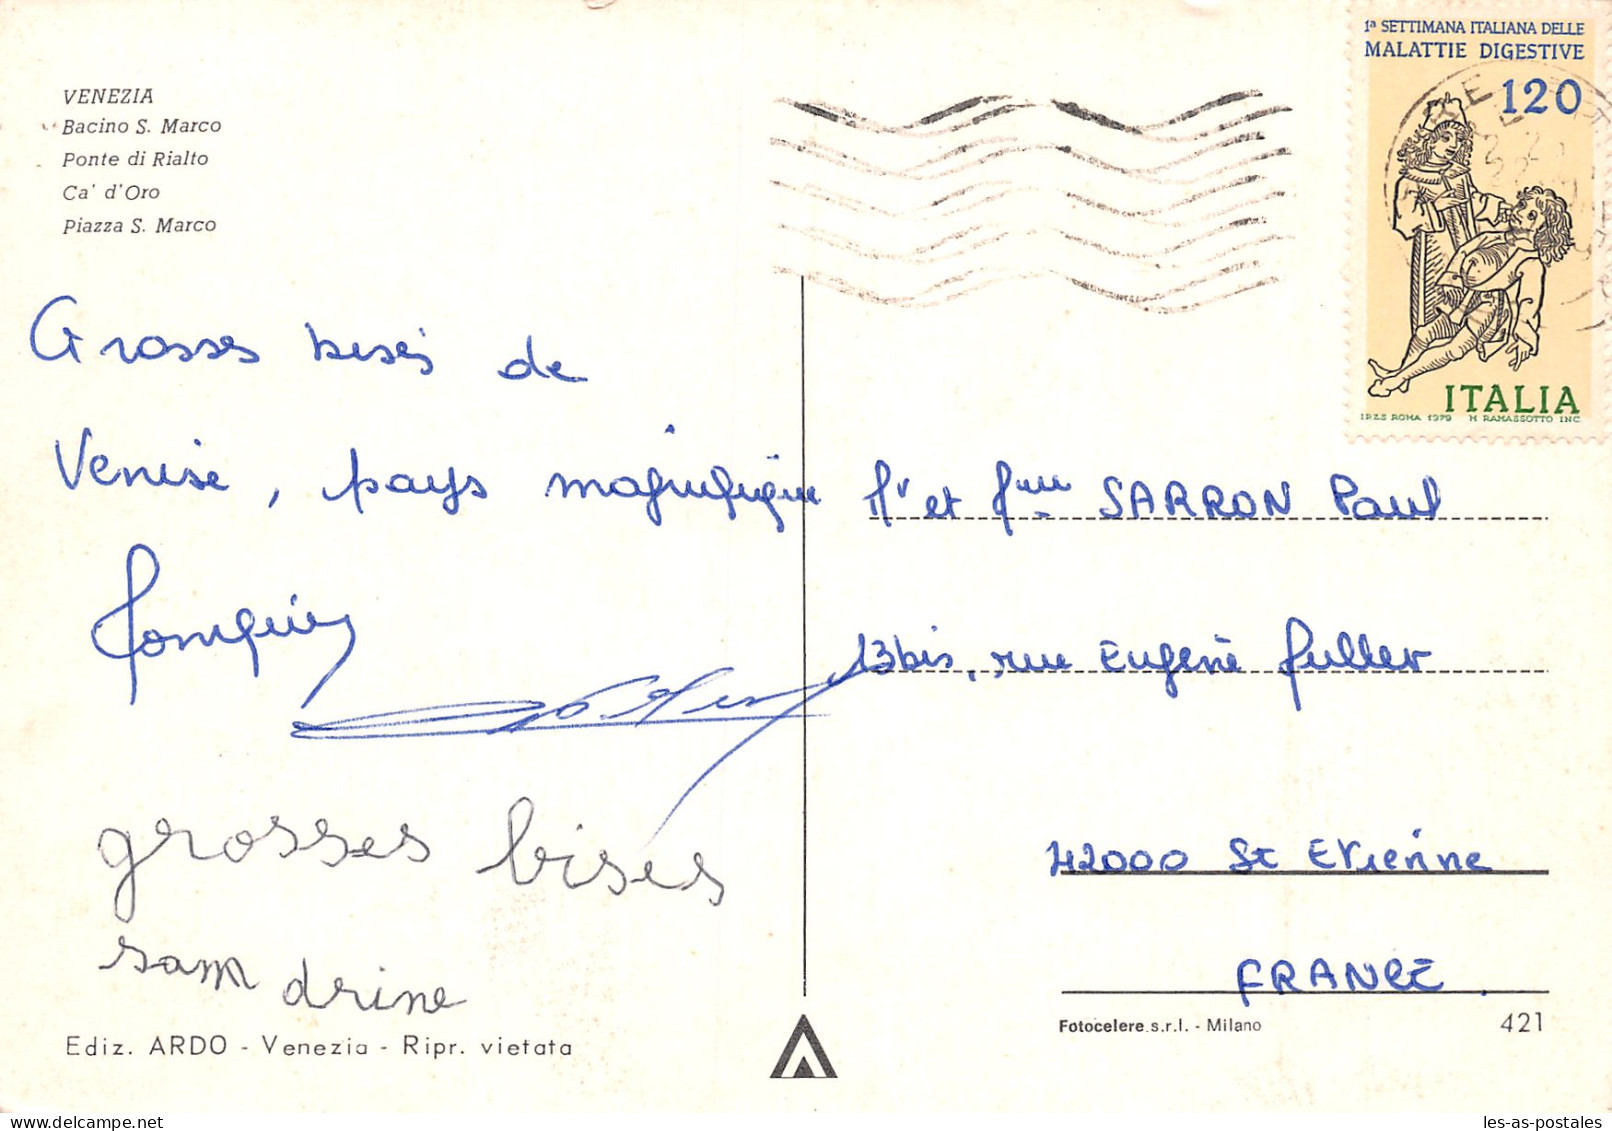 VENEZIA
Bacino S. Marco
Ponte di Rialto
Ca' d'Oro
Piazza S. Marco
1ª SETTIMANA ITALIANA DELLE
MALATTIE DIGESTIVE
120
ITALIA
I.P.Z.S. ROMA 1979 M RAMASSOTTO INC.
Grosses bises de
Venise, pays magnifique
Mr et Mme SARRON Paul
13bis, rue Eugène Muller
42000 St Etienne
FRANCE.
grosses bises
samdrine
Ediz. ARDO - Venezia - Ripr. vietata
Fotocelere s.r.l. - Milano
421
les-as-postales